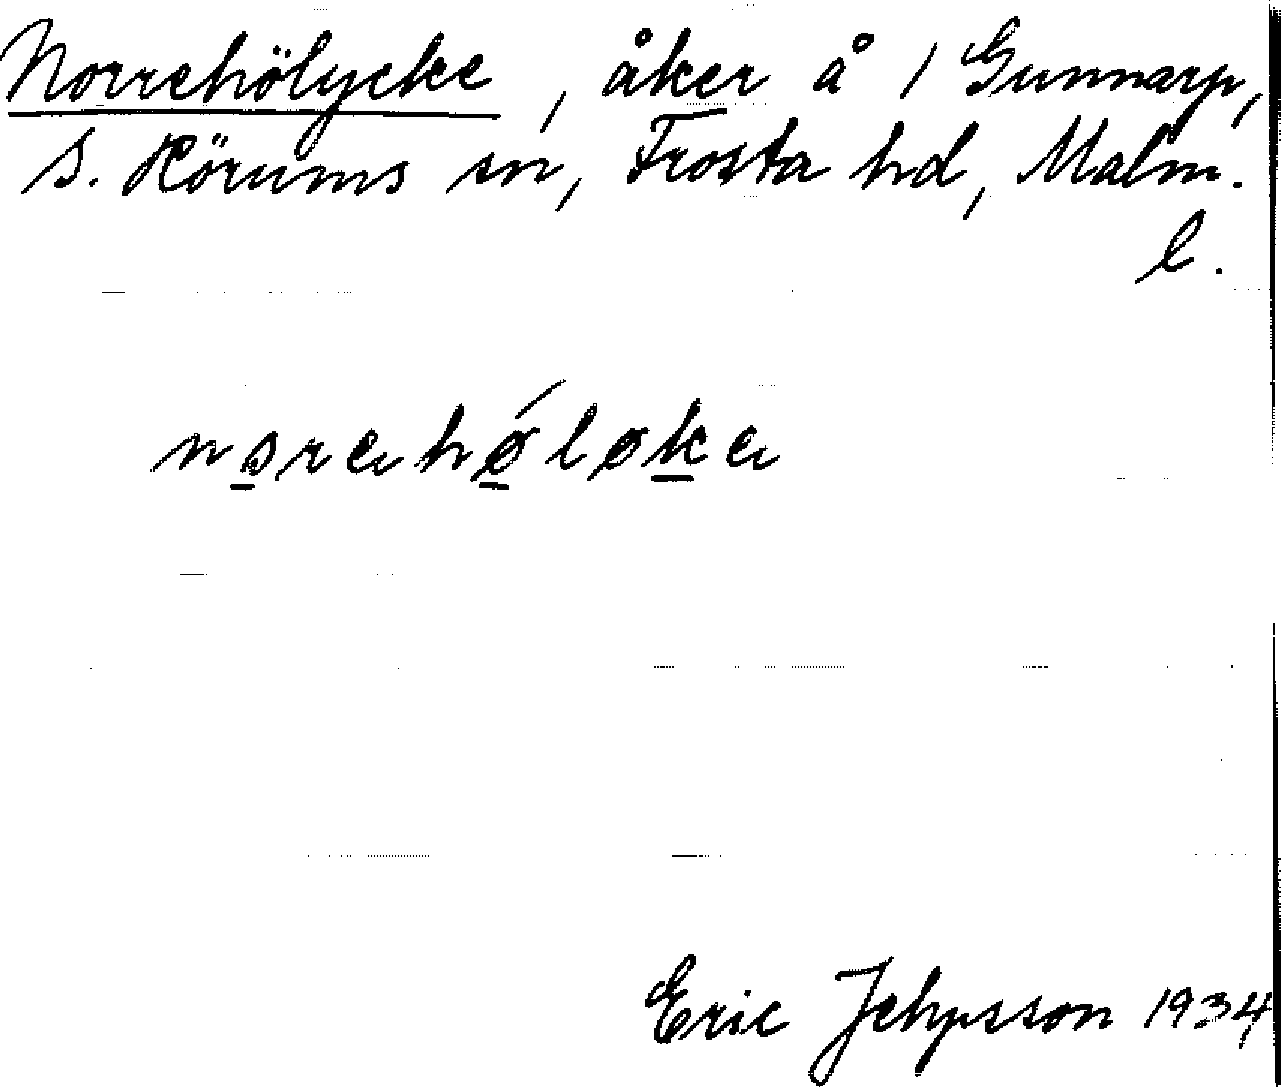 Norrehölycke, åker å 1 Gunnarp,
S. Rörums sn, Frosta hd, Malm.
l.
norehǿløke
Eric Jehpsson 1934